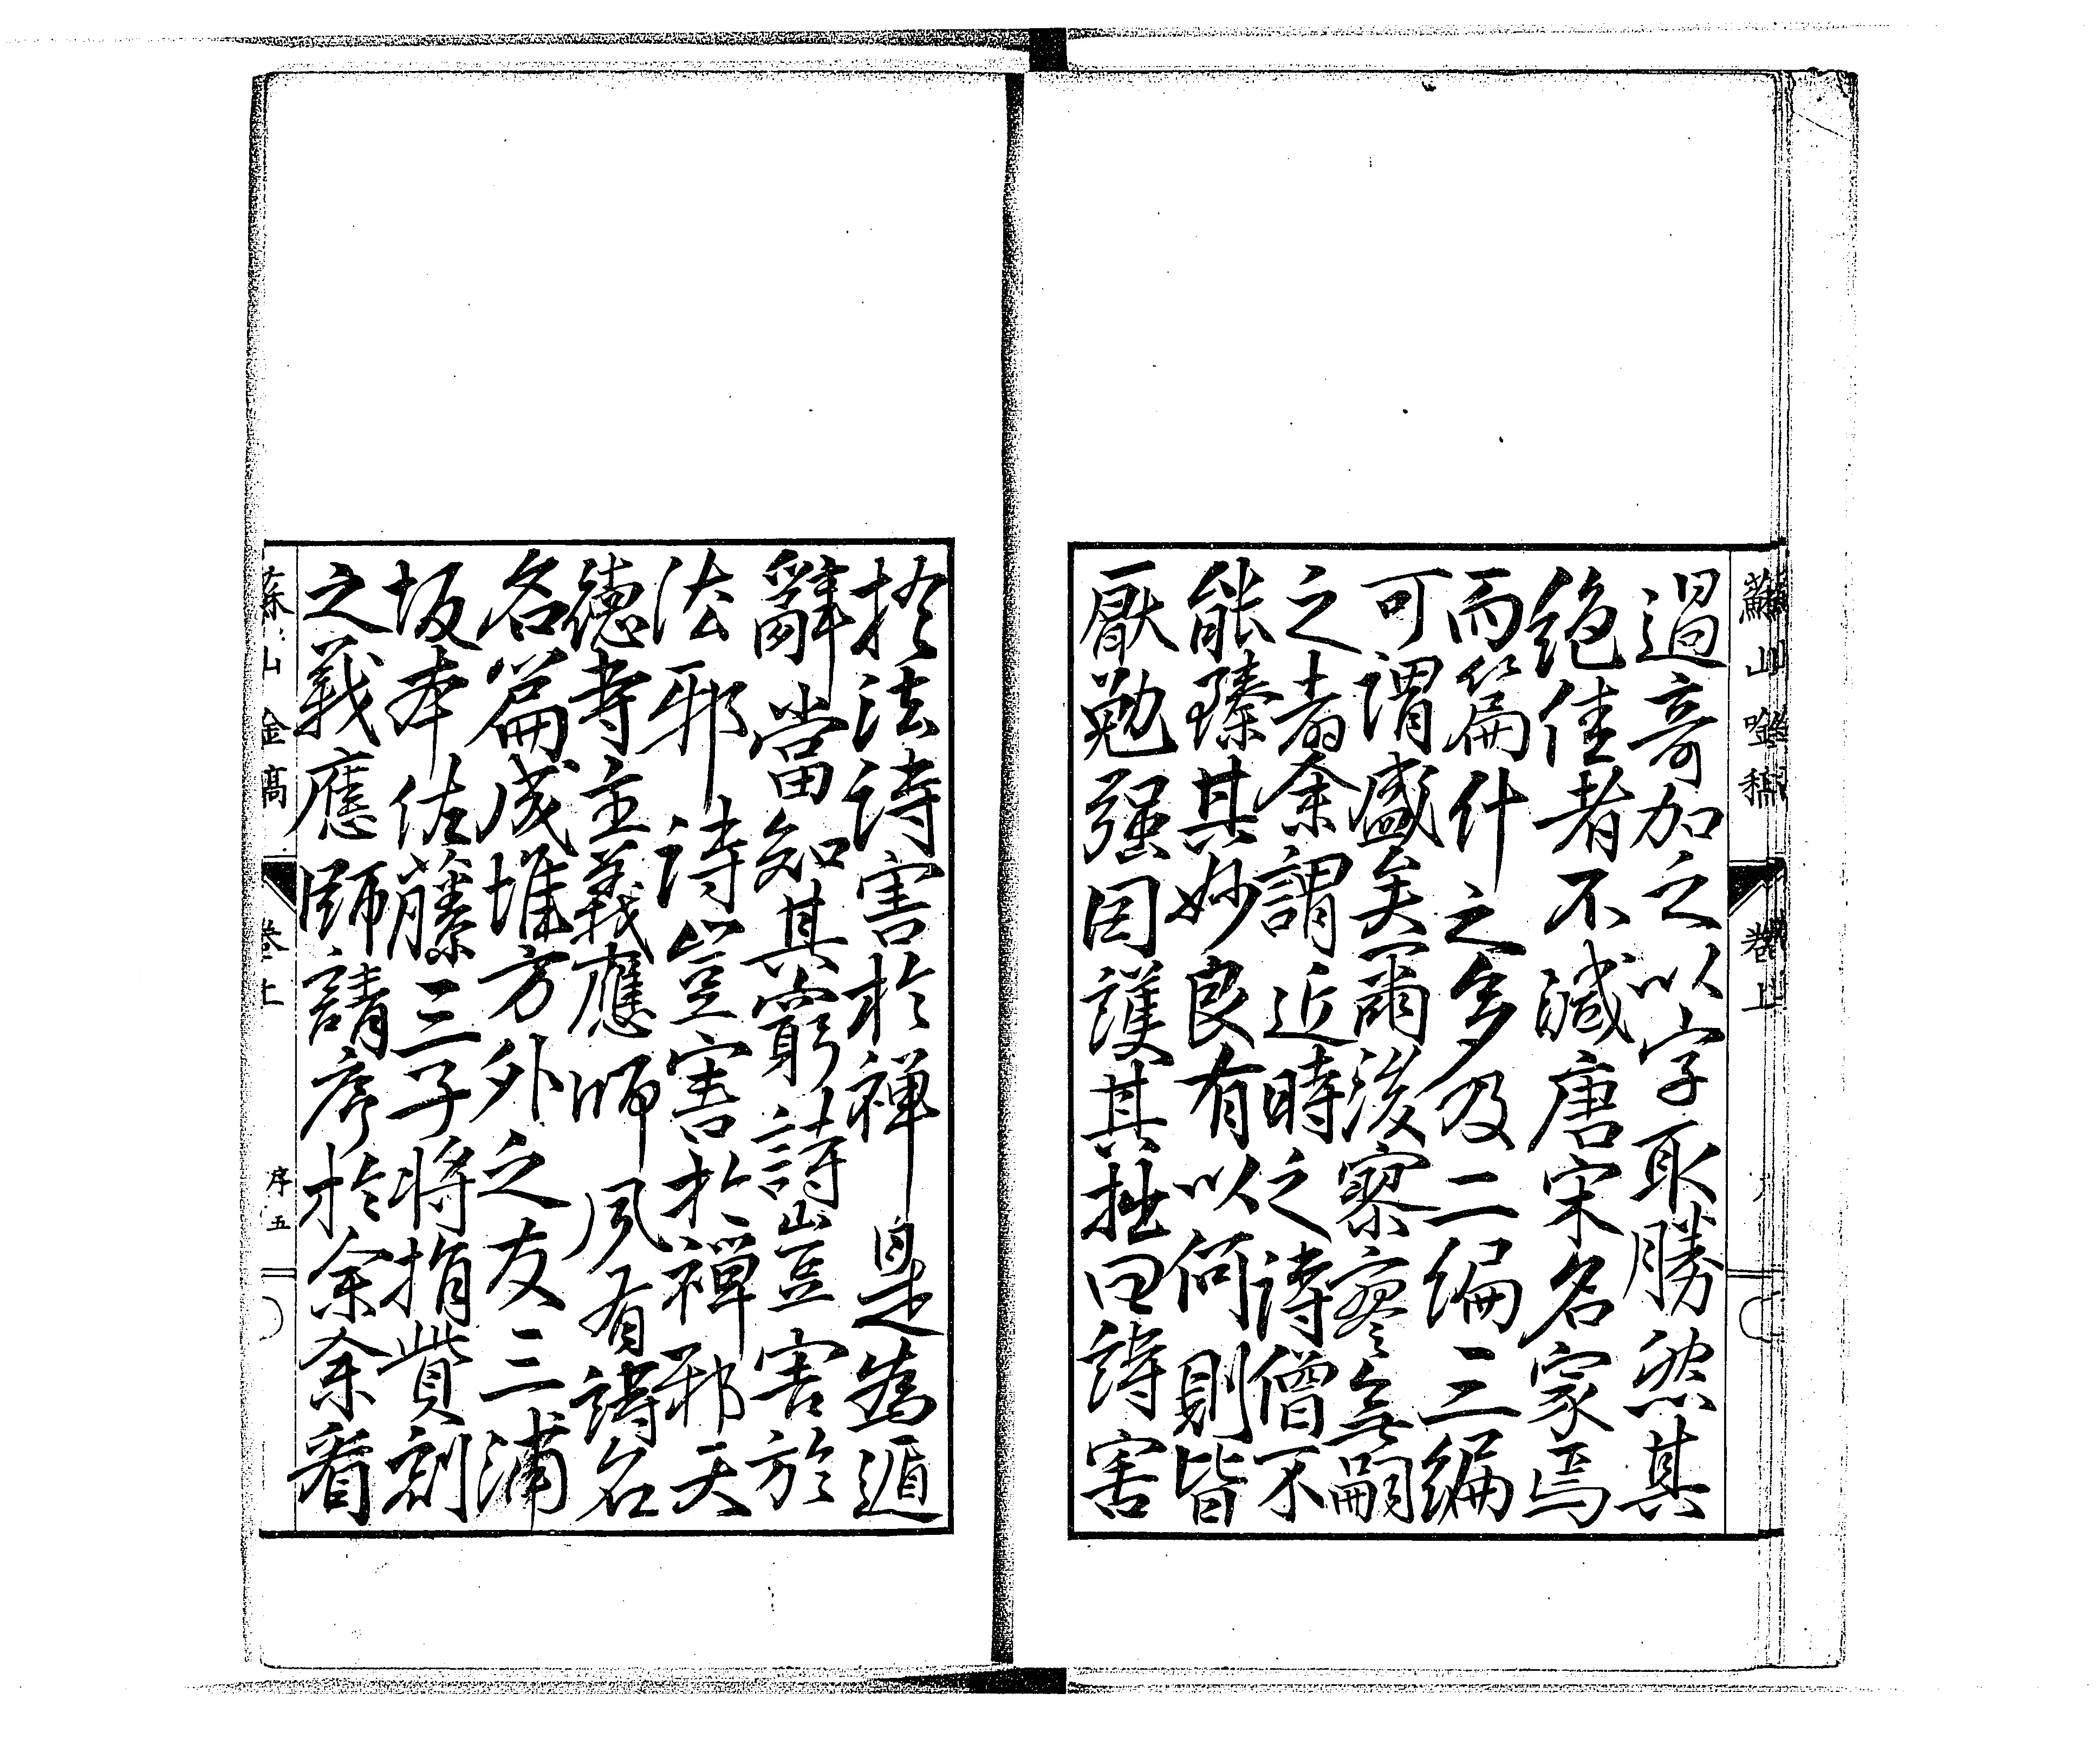 過奇加之以字取勝然其
絶佳者不減唐宋名家焉
而篇什之多及二編三編
可謂盛矣爾後寥寥無嗣
之者余謂近時之詩僧不
能臻其妙良有以何則皆
厭勉强因護其拙曰詩害
於法詩害於禅是為遁
辭當知其窮詩豈害於
法邪詩豈害於禅邪天
徳寺主義應師夙有詩名
名篇成堆方外之友三浦
坂本佐藤三子将捐貲刻
之義應師請序於余余看
巻上
序五